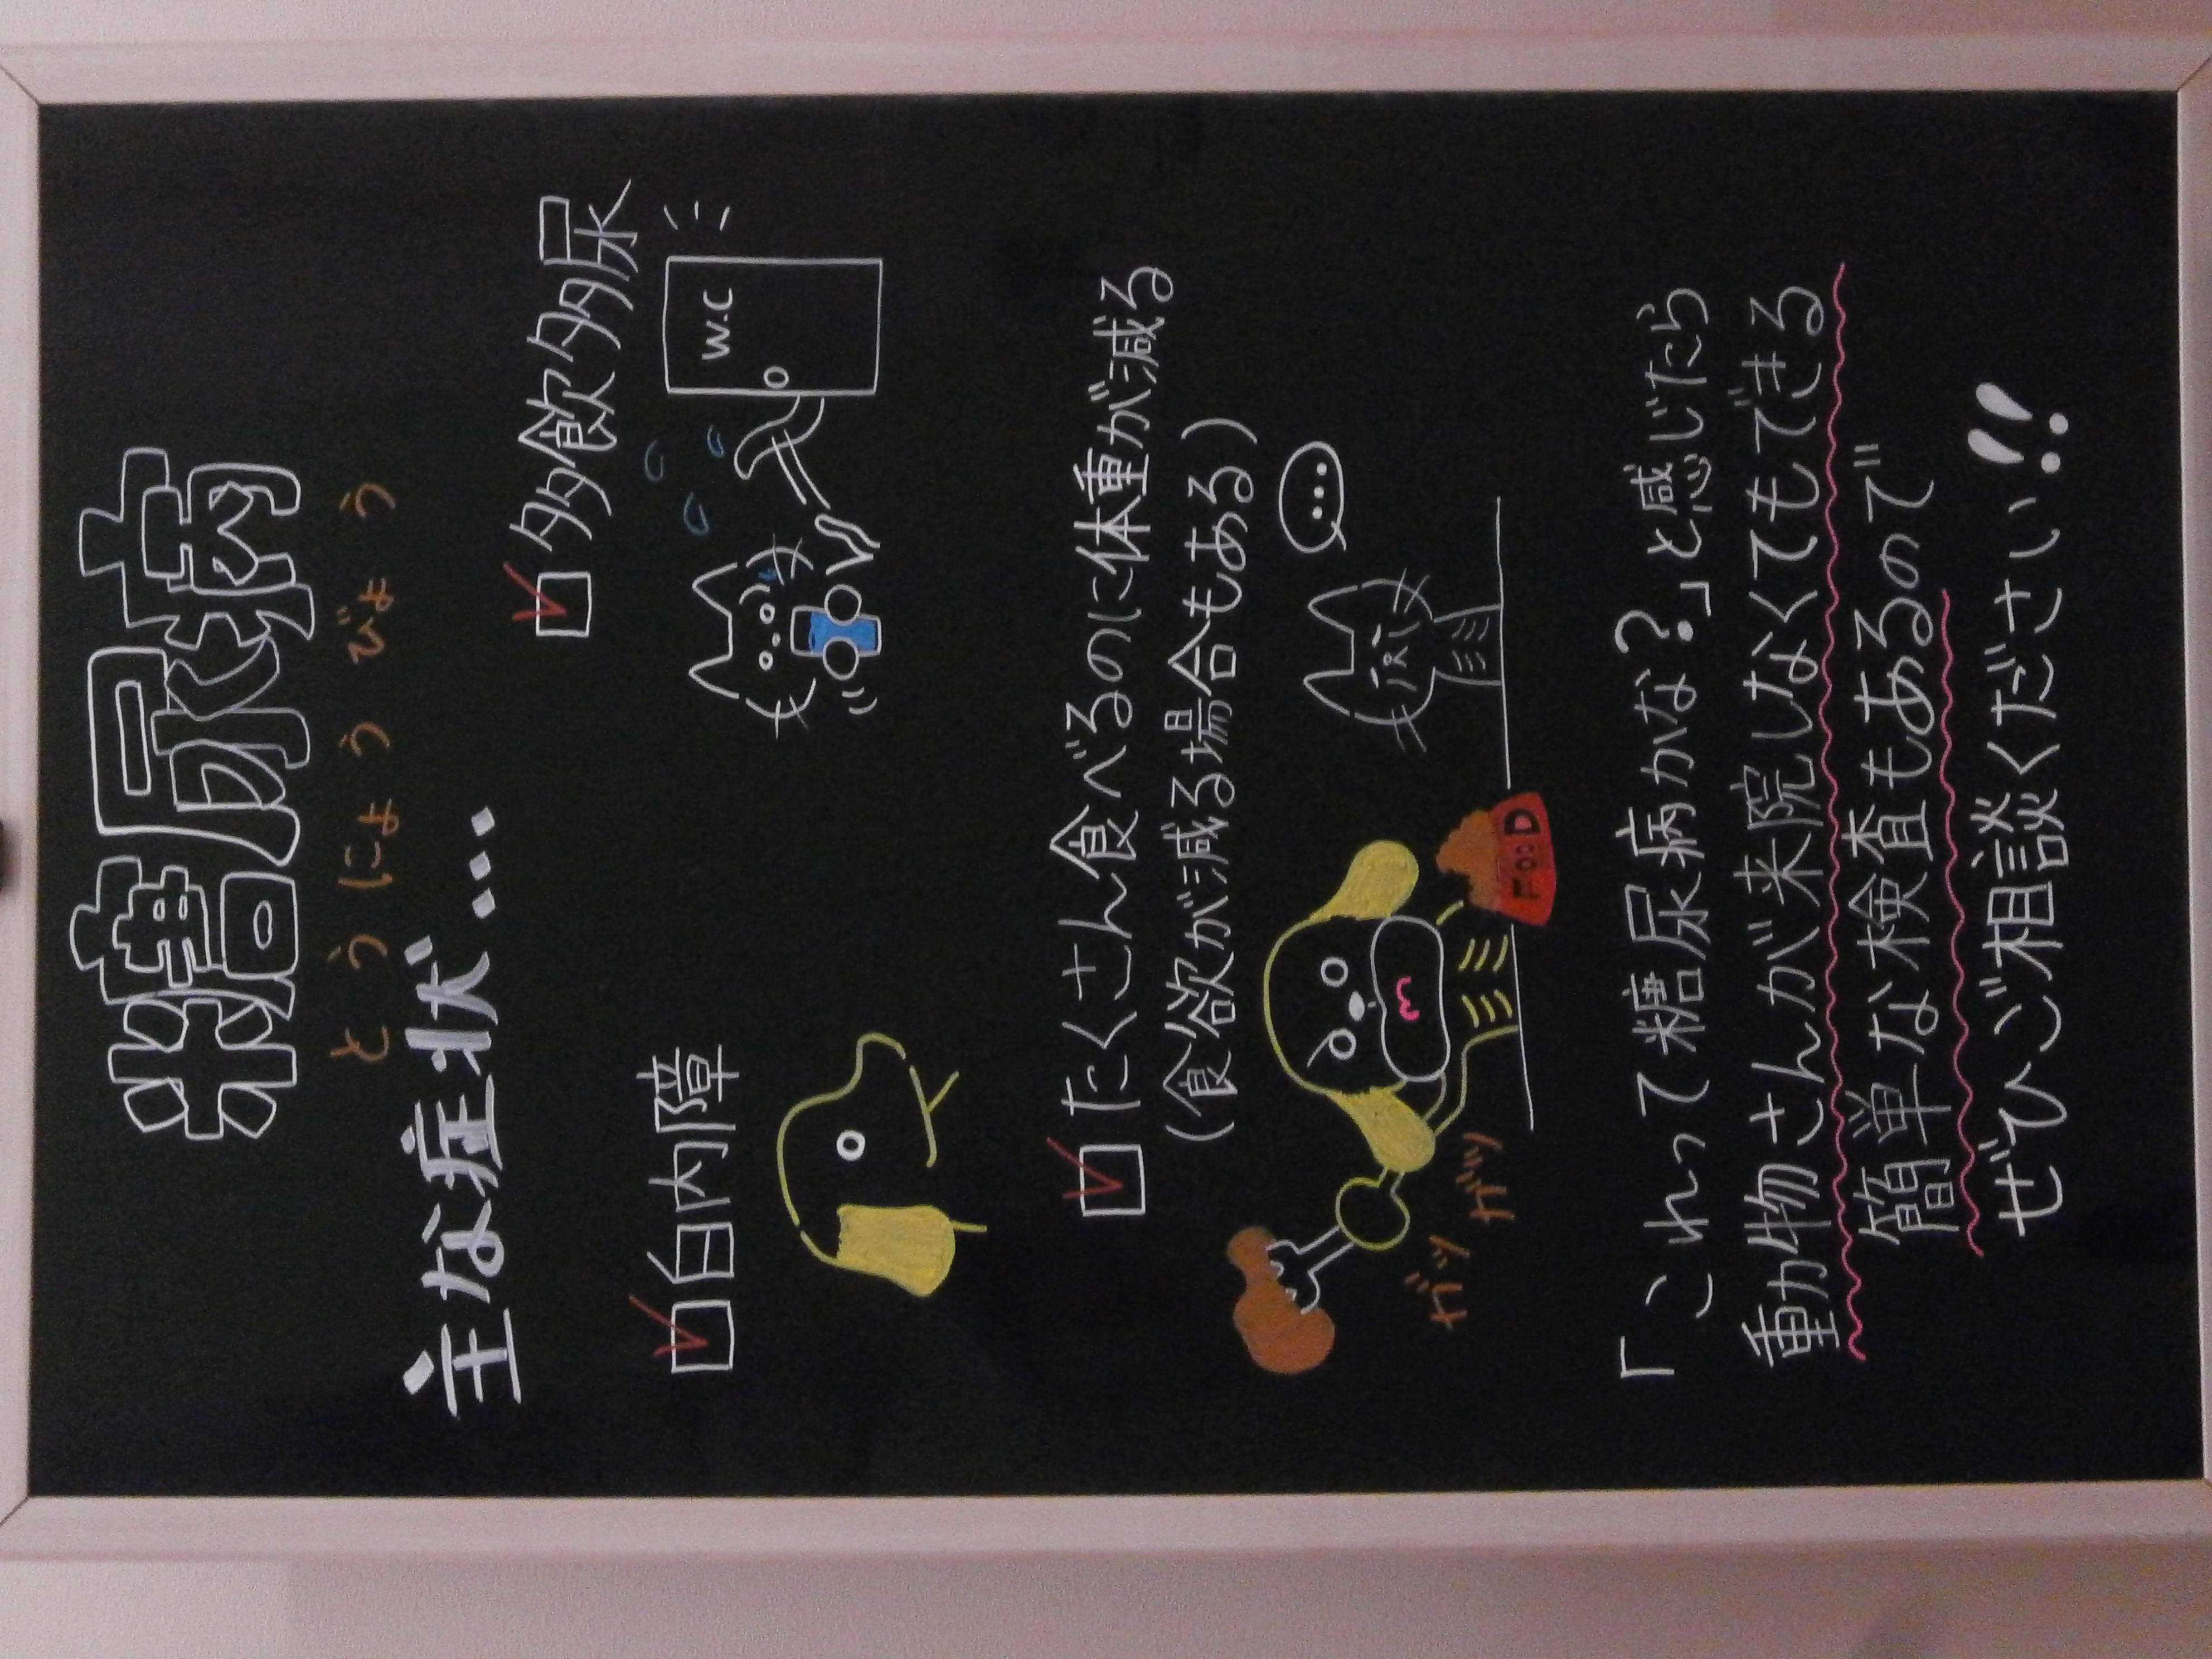 糖尿病
とうにょうびょう
主な症状...
多飲多尿
W.C
白内障
たくさん食べるのに体重が減る
(食欲が減る場合もある)
...
FooD
ガッ ガッ
「これって糖尿病かな?」と感じたら
動物さんが来院しなくてもできる
簡単な検査もあるので
ぜひご相談ください!!